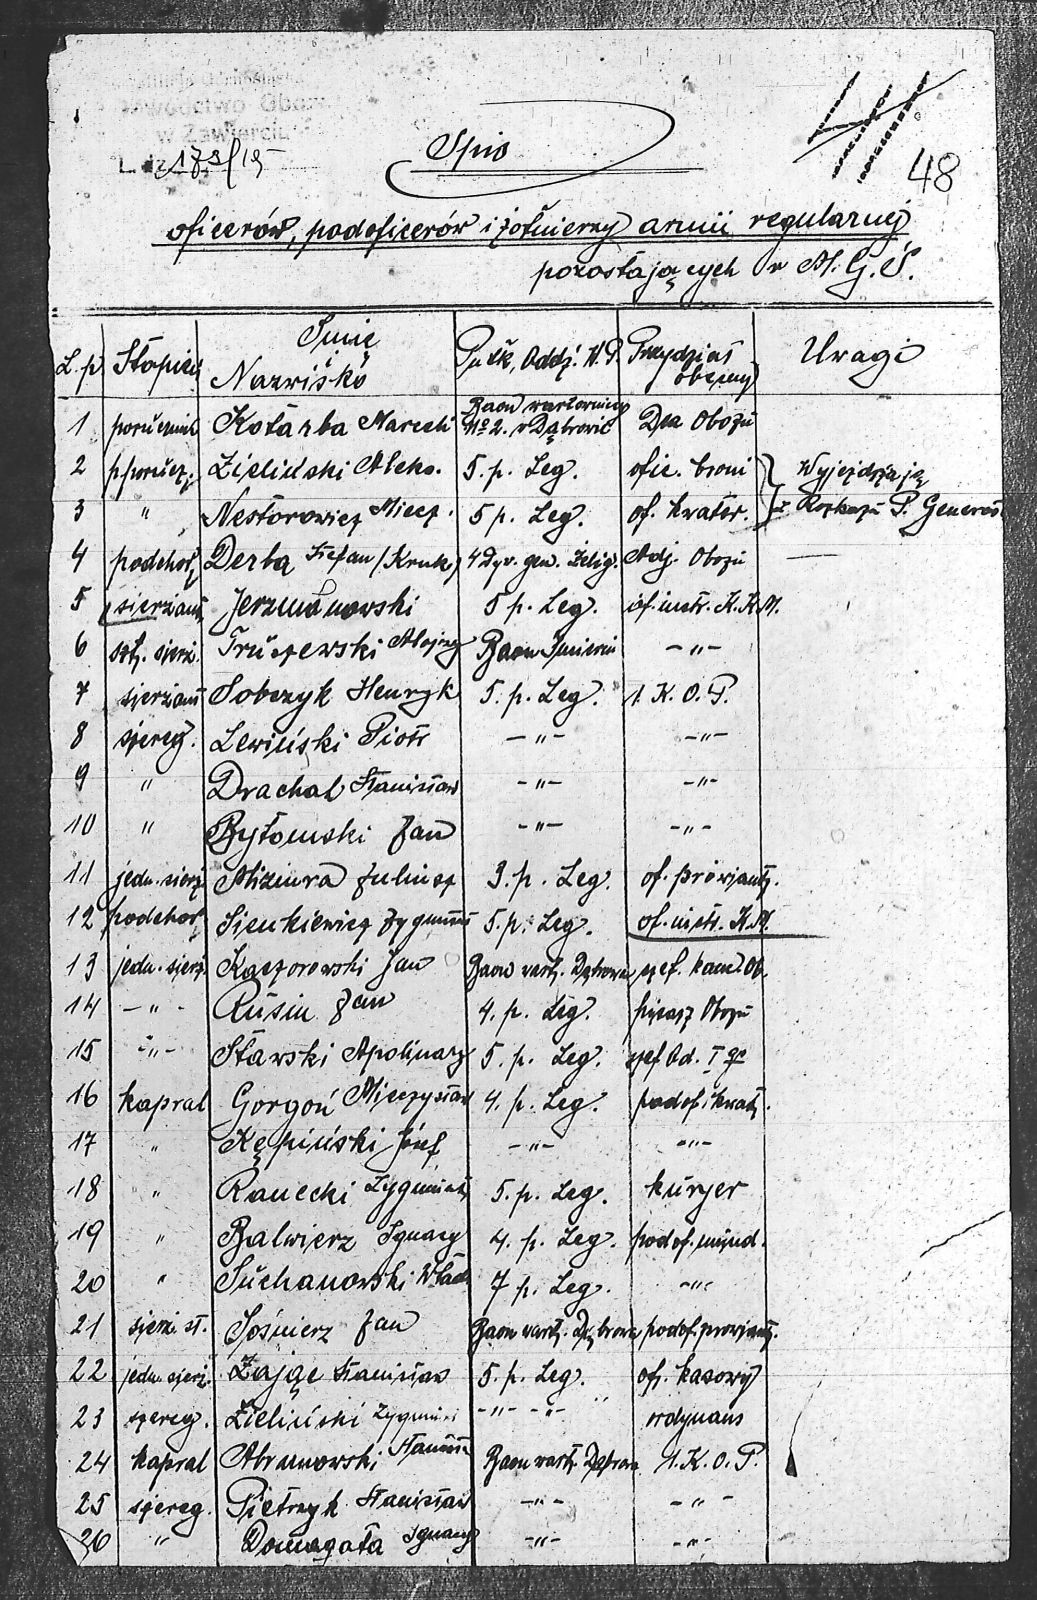 Dowództwo Obozu
w Zawierciu
L. dz.
48
Spis
oficerów, podoficerów i żołnierzy armii regularnej
pozostających w M. G. Ś.
L.p. Stopień Imię Nazwisko Pułk, Oddz. W.P. Przydział obecny Uwagi
1 porucznik Kotarba Marceli Baon wartowniczy No 2. w Dąbrowie Dca Obozu
2 p/porucz. Zieliński Aleks. 5. p. Leg. ofic. broni } Wyjeżdżają
3 " Nestorowicz Miecz. 5 p. Leg. of. kwater. } z Rozkazu P. Generała
4 podchor. Derba Stefan (Kruk) 4 Dyw. gen. Żelig. Adj. Obozu —
5 sierżant Jerzmanowski 5 p. Leg. of. instr. K.K.M.
6 szt. sierż. Truszewski Alojzy Baon Śmierci -"-
7 sierżant Sobczyk Henryk 5. p. Leg. 1. K. O. P.
8 szereg. Lewiński Piotr -"- -"-
9 " Drachal Stanisław -"- -"-
10 " Bytomski Jan -"- -"-
11 jedn. sierż. Miziura Juliusz 3. p. Leg. of. prowjant.
12 podchor. Sienkiewicz Zygmunt 5. p. Leg. of. instr. K.M.
13 jedn. sierż. Kasporowski Jan Baon wart. Dąbrowa szef. kanc. Ob.
14 -"- Rusin Jan 4. p. Leg. pisarz Obozu
15 -"- Starski Apolinary 5. p. Leg. szef Od. I gr
16 kapral Gorgoń Mieczysław 4. p. Leg. podof. kwat.
17 " Kępiński Józef -"- -"-
18 " Ranecki Zygmunt 5. p. Leg. kurjer
19 " Balwierz Ignacy 4. p. Leg. podof. mund.
20 " Suchanowski Wład. 7 p. Leg. -"-
21 sierż. st. Sośnierz Jan Baon wart. Dąbrowa podof. prowjant.
22 jedn. sierż. Zając Stanisław 5. p. Leg. of. kasowy
23 szereg. Zieliński Zygmunt -"- -"- " ordynans
24 kapral Abramowski Stanisław Baon wart. Dąbrowa 1. K. O. P.
25 szereg. Pietrzyk Stanisław -"- -"-
26 " Domagała Ignacy -"- -"-